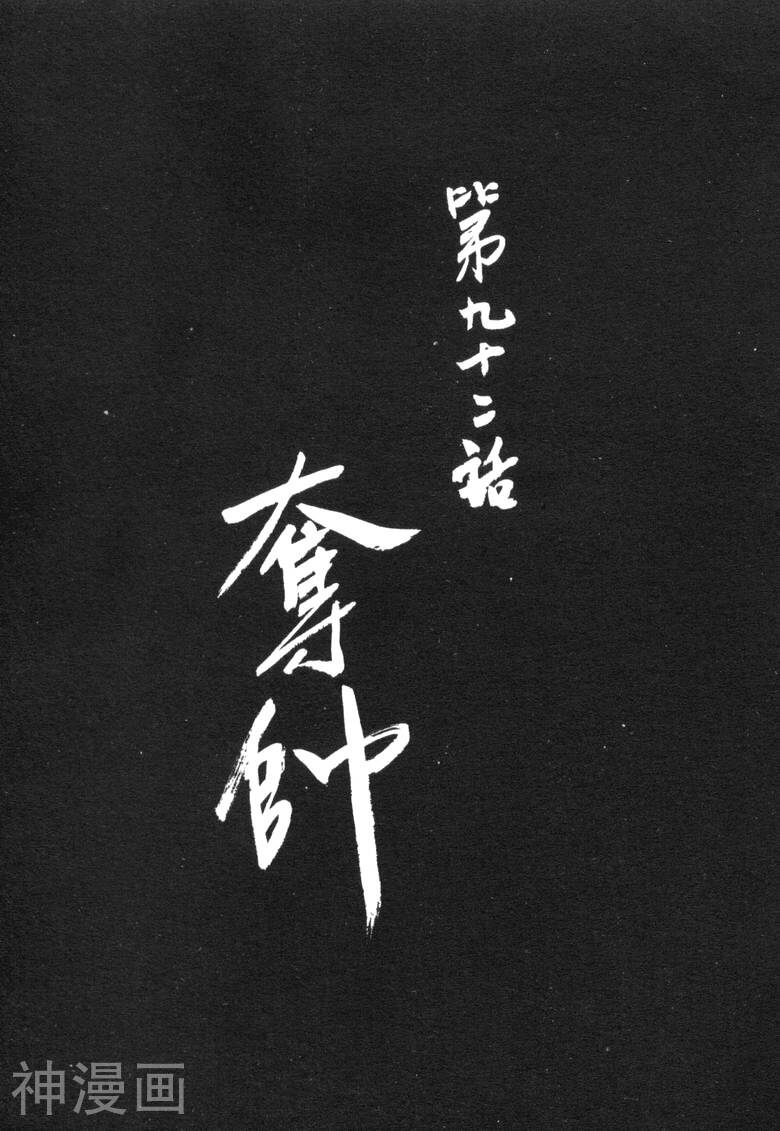 第九十二話
奪帥
神漫画